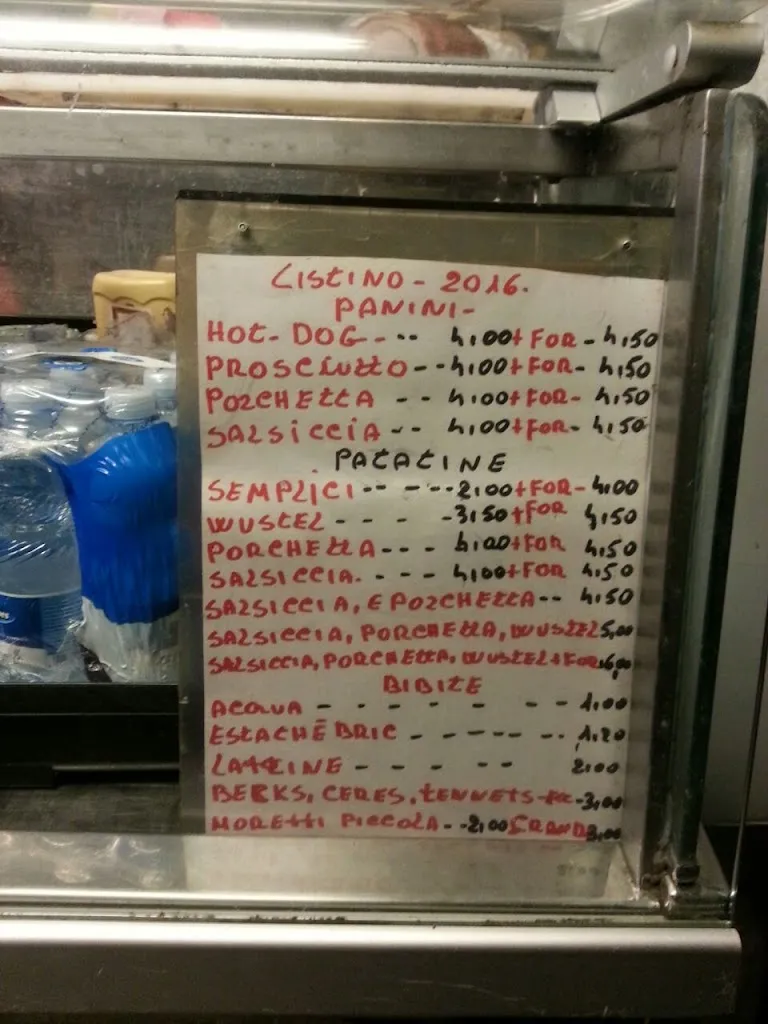 LISTINO - 2016.
PANINI -
HOT - DOG - - - 4,00 + FOR - 4,50
PROSCIUTTO - - 4,00 + FOR - 4,50
PORCHETTA - - 4,00 + FOR - 4,50
SALSICCIA - - 4,00 + FOR - 4,50
PATATINE
SEMPLICI - - - - - 2,00 + FOR - 4,00
WUSTEL - - - - 3,50 + FOR 4,50
PORCHETTA - - - 4,00 + FOR 4,50
SALSICCIA. - - - 4,00 + FOR 4,50
SALSICCIA, E PORCHETTA - - 4,50
SALSICCIA, PORCHETTA, WUSTEL 5,00
SALSICCIA, PORCHETTA, WUSTEL + FOR. 6,00
BIBITE
ACQUA - - - - - - - 1.00
ESTACHÈ BRIC - - - - - - - 1.20
LATTINE - - - - - 2.00
BEKS, CERES, TENNETS - ECC - 3,00
MORETTI PICCOLA - - 2,00 GRAND 3,00